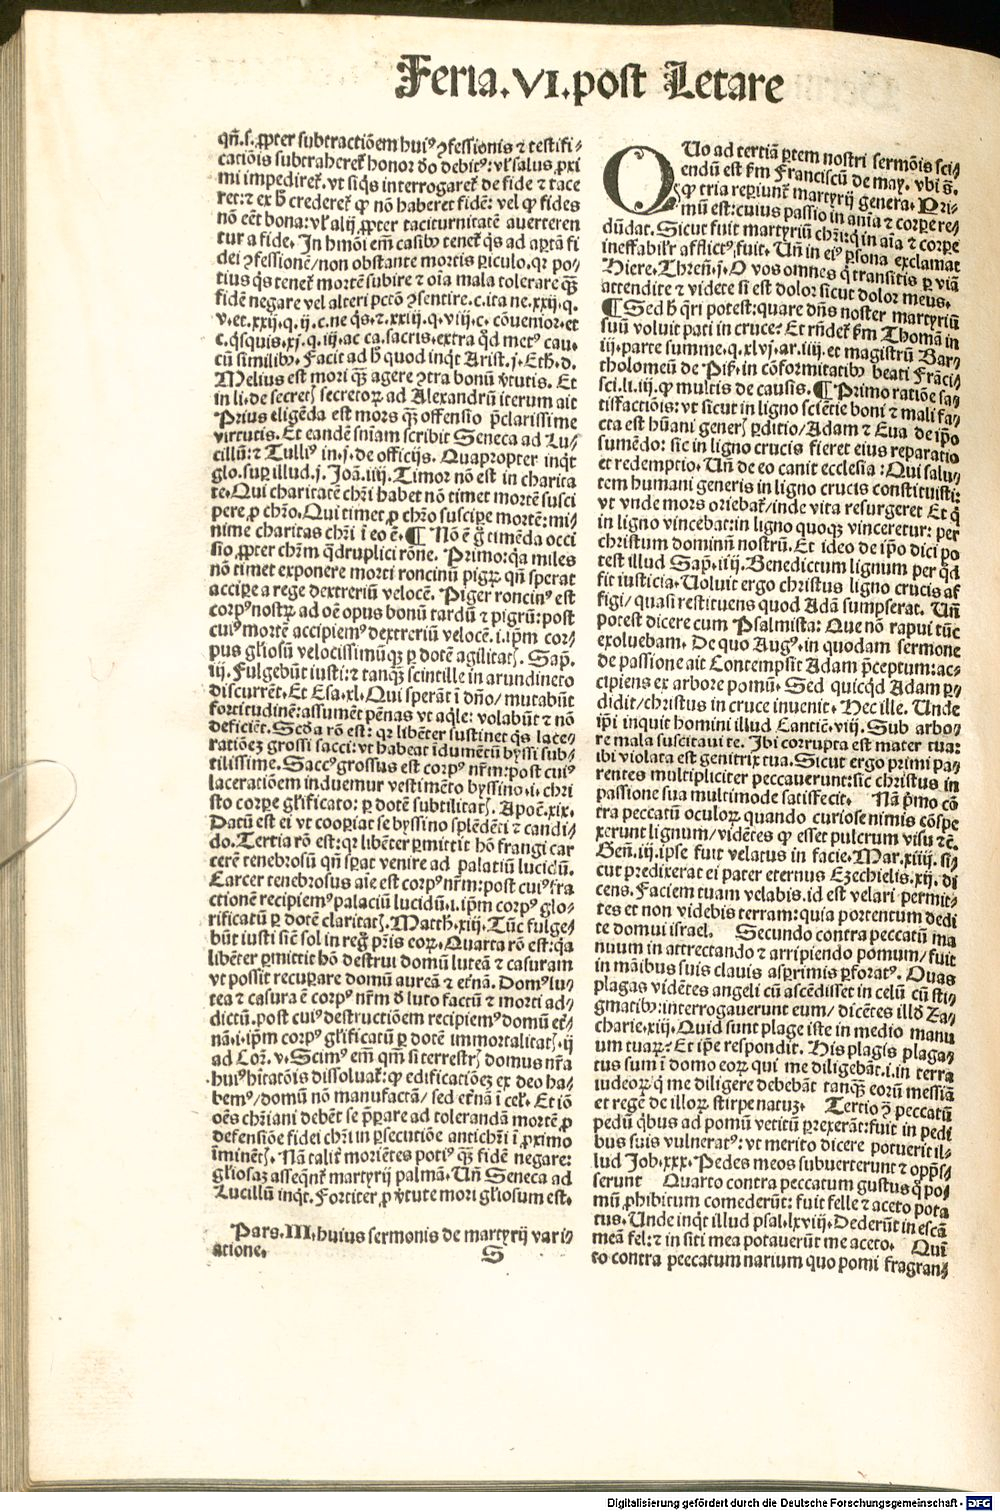 Feria.VI.post Letare
qn̄.s.ꝓpter subtractiōem hui⁹ ꝯfessionis ⁊ testifi⸗
catiōis subtraheret᷒ honor deo debit⁹: vł salus ꝓxi
mi impediret᷒. vt siq̄s interrogaret᷒ de fide ⁊ tace
ret: ⁊ ex h̄ crederet᷒ ꝙ nō haberet fidē: vel ꝙ fides
nō eēt bona: vł alij ꝓpter taciturnitatē auerteren
tur a fide. In hmōi em̄ casib⁹ tenet᷒ q̄s ad aꝑtā fi
dei ꝯfessionē/non obstante mortis ꝑiculo. qꝛ po⸗
tius q̄s tenet᷒ mortē subire ⁊ oīa mala tolerare q̄ꝫ
fidē negare vel alteri pctō ꝯsentire. c. ita ne. xxij. q.
v. et. xxij. q. ij. c. ne q̄s. ⁊. xxiij. q. viij. c. cōuenior. et
c. q̄squis. xj. q. iij. ac ca. sacris. extra q̄d met⁹ cau.
cū similib⁹. Facit ad h̄ quod inq̄t Arist. j. Eth. d.
Melius est mori q̄ꝫ agere ꝯtra bonū v̄tutis. Et
in li. de secretꝭ secretoꝝ ad Alexandrū iterum ait
Prius eligēda est mors q̄ꝫ offensio p̄clarissime
virtutis. Et eandē snīam scribit Seneca ad Lu⸗
cillū: ⁊ Tulli⁹ in. j. de officijs. Quapꝛopter inq̄t
glo. suꝑ illud. j. Joā. iiij. Timor nō est in charita
te. Qui charitatē chr̄i habet nō timet mortē susci
pere ꝓ chr̄o. Qui timet ꝓ chr̄o suscipe mortē: mi⸗
nime charitas chr̄i ī eo ē. ¶ Nō ē g̊ timēda occi
sio ꝓpter chr̄m q̄druplici rōne. Primo: q̄a miles
nō timet exponere morti roncinū pigꝝ qn̄ sperat
accipe a rege dextreriū velocē. Piger roncin⁹ est
corp⁹ nostꝝ ad oē opus bonū tardū ⁊ pigrū: post
cui⁹ mortē accipiem⁹ dextreriū velocē. i. ip̄m cor⸗
pus gl̄iosū velocissimūqꝫ ꝑ dotē agilitatꝭ. Sap.
iij. Fulgebūt iusti: ⁊ tanq̄ꝫ scintille in arundineto
discurrēt. Et Esa. xl. Qui sperāt ī dn̄o/ mutabūt
fortitudinē: assumēt pēnas vt aq̄le: volabūt ⁊ nō
deficiēt. Secda rō est: qꝛ libēter sustinet q̄s lace⸗
ratiōeꝫ grossi sacci: vt habeat īdumētū byssi sub⸗
tilissime. Sacc⁹ grossus est corp⁹ nr̄m: post cui⁹
laceratiōem induemur vestimēto byssino. i. chri
sto corpe gl̄ificato: ꝑ dotē subtilitatꝭ. Apoc̄. xix.
Datū est ei vt cooꝑiat se byssino splēdēti ⁊ candi⸗
do. Tertia rō est: qꝛ libēter ꝑmittit hō frangi car
cerē tenebrosū qn̄ sꝑat venire ad palatiū lucidū.
Carcer tenebrosus aīe est corp⁹ nr̄m: post cui⁹ fra
ctionē recipiem⁹ palaciū lucidū. i. ip̄m corp⁹ glo⸗
rificatū ꝑ dotē claritatꝭ. Matth. xiij. Tūc fulge⸗
būt iusti sic̄ sol in reg̊ pr̄is eoꝝ. Quarta rō est: q̄a
libēter ꝑmittit hō destrui domū luteā ⁊ casuram
vt possit recuꝑare domū aureā ⁊ et̄nā. Dom⁹ lu⸗
tea ⁊ casura ē corp⁹ nr̄m d̄ luto factū ⁊ morti ad⸗
dictū. post cui⁹ destructiōem recipiem⁹ domū et̄⸗
nā. i. ip̄m corp⁹ gl̄ificatū ꝑ dotē immortalitatꝭ. ij
ad Cor̄. v. Scim⁹ em̄ qm̄ si terrestrꝭ domus nr̄a
hui⁹ hītatōis dissoluat᷒: ꝙ edificatiōeꝫ ex deo ha⸗
bem⁹/ domū nō manufactā/ sed et̄nā ī cel̄. Et iō
oēs chr̄iani debēt se p̄parare ad tolerandā mortē ꝓ
defensiōe fidei chr̄i in ꝑsecutiōe antichr̄i ī ꝓximo
īminētꝭ. Nā talit᷒ moriētes poti⁹ q̄ꝫ fidē negare:
gl̄iosaꝫ asseqn̄t᷒ martyrij palmā. Un̄ Seneca ad
Lucillū inq̄t. Fortiter ꝓ v̄tute mori gl̄iosum est.
Pars. III. huius sermonis de martyrij vari⸗
atione. S
QUo ad tertiā ꝑtem nostri sermōis sci⸗
endū est ẜm Franciscū de may. vbi s̄.
ꝙ tria reꝑiunt᷒ martyrij genera. Pri⸗
mū est: cuius passio in aīa ⁊ corpe re⸗
dūdat. Sicut fuit martyriū chr̄i: q̄ in aīa ⁊ corpe
ineffabilr̄ afflict⁹ fuit. Un̄ in ei⁹ ꝑsona exclamat
Hiere. Thren̄. j. O vos omnes q̄ transitis ꝑ viā
attendite ⁊ videte si est dolor sicut dolor meus.
¶ Sed h̄ q̄ri potest: quare dn̄s noster martyriū
suū voluit pati in cruce? Et rn̄det᷒ ẜm Thomā in
iij. parte summe. q. xlvj. ar. iiij. et magistrū Bar⸗
tholomeū de Pis̄. in cōformitatib⁹ beati Frāci⸗
sci. li. iij. ꝙ multis de causis. ¶ Primo ratiōe sa⸗
tisfactiōis: vt sicut in ligno sciētie boni ⁊ mali fa⸗
cta est hūani generꝭ ꝑditio/ Adam ⁊ Eua de ip̄o
sumēdo: sic in ligno crucis fieret eius reparatio
et redemptio. Un̄ de eo canit ecclesia: Qui salu⸗
tem humani generis in ligno crucis constituisti:
vt vnde mors oriebat᷒/ inde vita resurgeret Et q̄
in ligno vincebat: in ligno quoqꝫ vinceretur: per
christum dominū nostrū. Et ideo de ip̄o dici po
test illud Sap. iiij. Benedictum lignum per q̄d
fit iusticia. Uoluit ergo christus ligno crucis af
figi/ quasi restituens quod Adā sumpserat. Un̄
potest dicere cum Psalmista: Que nō rapui tūc
exoluebam. De quo Aug⁹. in quodam sermone
de passione ait Contempsit Adam p̄ceptum: ac⸗
cipiens ex arbore pomū. Sed quicq̄d Adam ꝑ⸗
didit/ christus in cruce inuenit. Hec ille. Unde
ip̄i inquit homini illud Cantic̄. viij. Sub arbo⸗
re mala suscitaui te. Ibi corrupta est mater tua:
ibi violata est genitrix tua. Sicut ergo primi pa⸗
rentes multipliciter peccauerunt: sic christus in
passione sua multimode satisfecit. Nā p̄mo cō
tra peccatū oculoꝝ quando curiose nimis cōspe
xerunt lignum/ vidētes ꝙ esset pulcrum visu ⁊c̄.
Gen̄. iij. ipse fuit velatus in facie. Mar. xiiij. si⸗
cut predixerat ei pater eternus Ezechielis. xij. di
cens. Faciem tuam velabis. id est velari permit⸗
tes et non videbis terram: quia portentum dedi
te domui israel. Secundo contra peccatū ma
nuum in attrectando ⁊ arripiendo pomum/ fuit
in māibus suis clauis asperimis ꝑforat⁹. Quas
plagas vidētes angeli cū ascēdisset in celū cū sti⸗
gmatib⁹: interrogauerunt eum/ dicētes illd̄ Za⸗
charie. xiij. Quid sunt plage iste in medio manu
um tuaꝝ? Et ip̄e respondit. His plagis plaga⸗
tus sum ī domo eoꝝ qui me diligebāt. i. in terra
iudeoꝝ q̄ me diligere debebāt tanq̄ꝫ eorū messiā
et regē de illoꝝ stirpe natuꝫ. Tertio ꝯ peccatū
pedū q̄bus ad pomū vetitū ꝑrexerāt: fuit in pedi
bus suis vulnerat⁹: vt merito dicere potuerit il⸗
lud Job. xxx. Pedes meos subuerterunt ⁊ opp̄s⸗
serunt Quarto contra peccatum gustus q̊ po⸗
mū ꝓhibitum comederūt: fuit felle ⁊ aceto pota
tus. Unde inq̄t illud psal. lxviij. Dederūt in escā
meā fel: ⁊ in siti mea potauerūt me aceto. Quī
to contra peccatum narium quo pomi fragran⸗
Digitalisierung gefördert durch die Deutsche Forschungsgemeinschaft - DFG